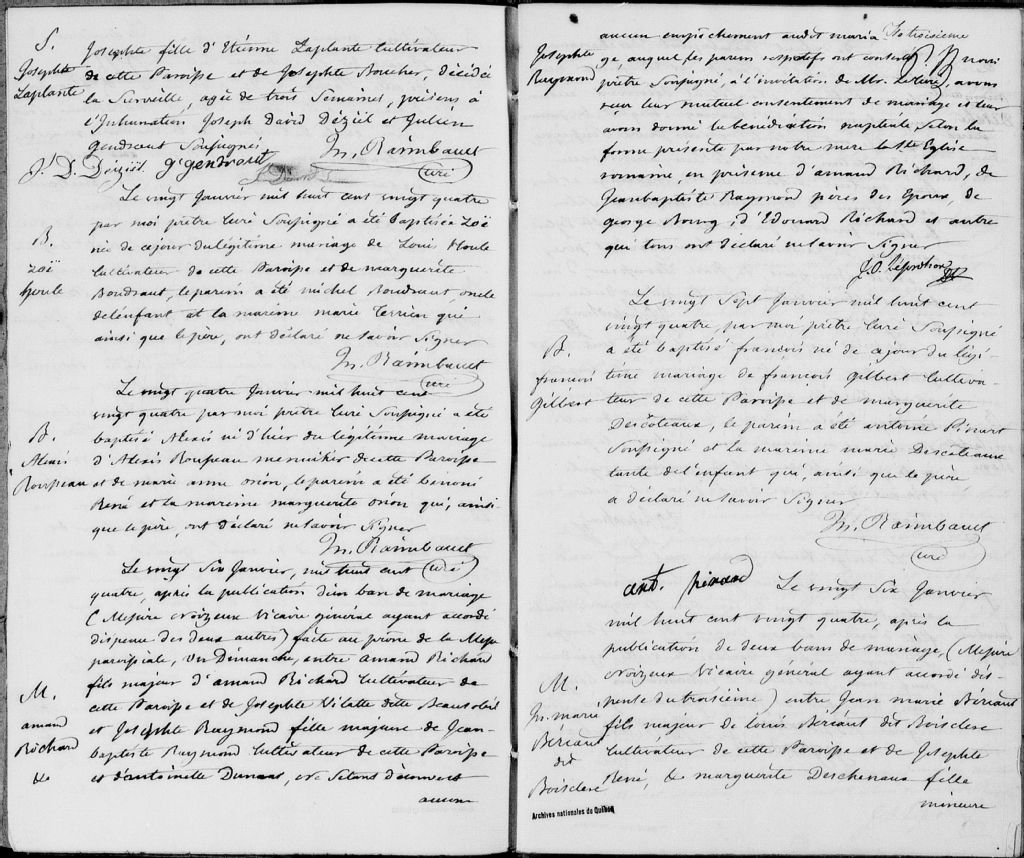 S.
Josephte
Laplante
Josephte fille d'Etienne Laplante Cultivateur
de cette Paroisse et de Josephte Boucher, décédée
la Surveille, agée de trois Semaines, présens à
l'Inhumation Joseph David Déziel et Julien
Gendraut Soussignés
Jn. Raimbault
curé
J. D. Déziel
gendraut
Le vingt Janvier mil huit cent vingt quatre
par moi prêtre Curé Soussigné a été baptisée Zoë
née de ce jour du légitime mariage de Louis Houle
Cultivateur de cette Paroisse et de marguerite
Boudraut, le parein a été michel Boudraut oncle
de l'enfant et la mareine marie Terrien qui
ainsi que le père, ont déclaré ne savoir Signer
B.
Zoë
houle
Jn. Raimbault
curé
Le vingt quatre Janvier mil huit cent
vingt quatre par moi prêtre Curé Soussigné a été
baptisé Alexis né d'hier du légitime mariage
d'Alexis Rousseau menuisier de cette Paroisse
et de marie anne orion, le parein a été benoni
René et la mareine marguerite orion qui, ainsi
que le père, ont déclaré ne savoir Signer
B.
Alexis
Rousseau
Jn. Raimbault
curé
Le vingt Six Janvier, mil huit cent
quatre, après la publication d'un ban de mariage
(Messire Noizeux Vicaire général ayant accordé
dispense des deux autres) faite au prône de la Messe
paroissiale, un Dimanche, entre amand Richard
fils majeur d'amand Richard Cultivateur de
cette Paroisse et de Josephte Vilatte dite Beausoleil
et Josephte Raymond fille majeure de Jean-
baptiste Raymond Cultivateur de cette Paroisse
et d'antoinette
ne S'étant découvert
aucun
M.
amand
Richard
&
Josephte
Raymond
aucun empêchement audit maria
ge, auquel les parens respectifs ont consenti nous
prêtre Soussigné, à l'invitation de Mr. Le Curé, avons
reçu leur mutuel consentement de mariage et leur
avons donné la bénédiction nuptiale Selon la
forme présente par notre mère la Ste Eglise
romaine, en présence d'amand Richard, de
Jeanbaptiste Raymond pères des Epoux, de
george Bourg, d'Edouard Richard et autre
qui tous ont déclaré ne savoir Signer
Le vingt Sept Janvier mil huit cent
vingt quatre, par moi prêtre Curé Soussigné
a été baptisé francois né de ce jour du légi-
time mariage de francois Gilbert Cultiva-
teur de cette Paroisse et de marguerite
Descoteaux, le parein a été antoine Pinart
Soussigné et la mareine marie Descoteaux
tante de l'enfent qui, ainsi que le père
a déclaré ne savoir Signer
B.
francois
Gilbert
Jn. Raimbault
curé
ant. pinard
Le vingt Six Janvier
mil huit cent vingt quatre, après la
publication de deux bans de mariage, (Messire
Noizeux Vicaire général ayant accordé dis-
pense du troisième) entre Jean marie Bériaut
fils majeur de Louis Bériaut dit Boisclere
Cultivateur de cette Paroisse et de Josephte
René, & marguerite Deschenaux fille
mineure
M.
Jn. marie
Bériaut
dit
Boisclere
Archives nationales du Québec